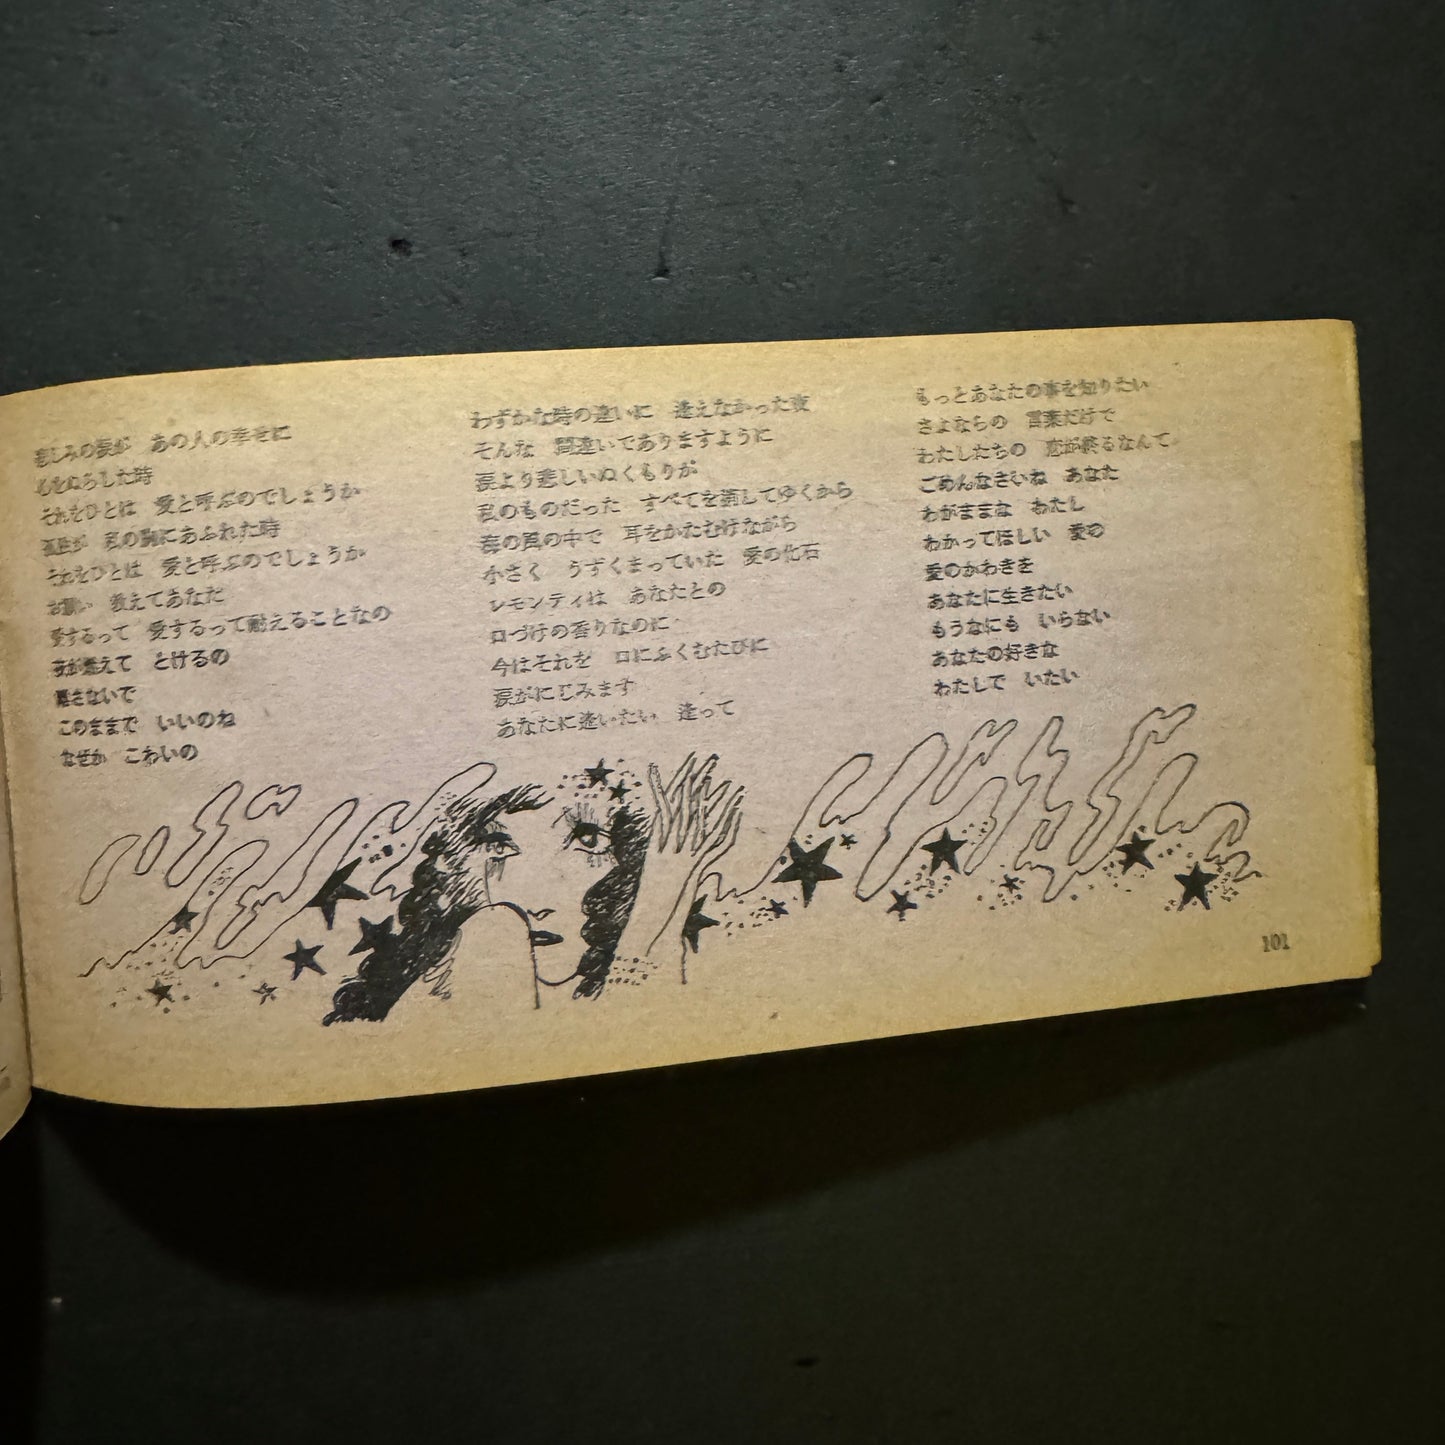 悲しみの涙が　あの人の幸せに
心をぬらした時
それをひとは　愛と呼ぶのでしょうか
孤独が　私の胸にあふれた時
それをひとは　愛と呼ぶのでしょうか
お願い　教えてあなた
愛するって　愛するって耐えることなの
夜が燃えて　とけるの
離さないで
このままで　いいのね
なぜか　こわいの
わずかな時の違いに　逢えなかった夜
そんな　間違いでありますように
涙より悲しいぬくもりが
私のものだった　すべてを消してゆくから
春の風の中で　耳をかたむけながら
小さく　うずくまっていた　愛の化石
レモンティは　あなたとの
口づけの香りなのに
今はそれを　口にふくむたびに
涙がにじみます
あなたに逢いたい　逢って
もっとあなたの事を知りたい
さよならの　言葉だけで
わたしたちの　恋が終るなんて
ごめんなさいね　あなた
わがままな　わたし
わかってほしい　愛の
愛のかわきを
あなたに生きたい
もうなにも　いらない
あなたの好きな
わたしで　いたい
101